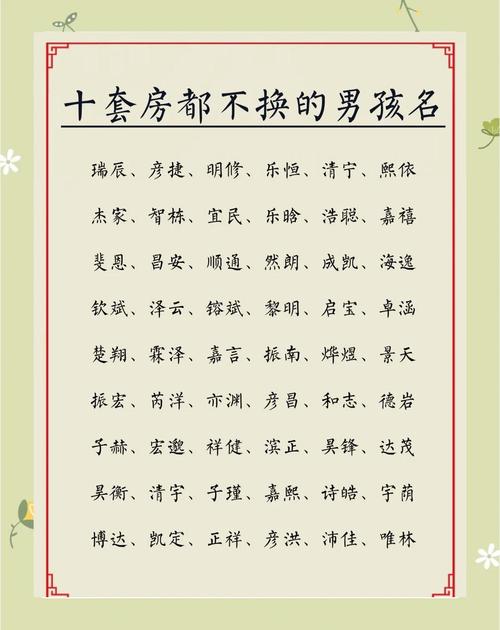 十套房都不换的男孩名
瑞辰、彦捷、明修、乐恒、清宁、熙依
杰家、智栋、宜民、乐晗、浩聪、嘉禧
斐恩、昌安、顺通、然朗、成凯、海逸
钦斌、泽云、镕斌、黎明、启宝、卓涵
楚翔、霖泽、嘉言、振南、烨煜、景天
振宏、芮洋、亦渊、彦昌、和志、德岩
子赫、宏邈、祥健、滨正、昊锋、达茂
昊衡、清宇、子瑾、嘉熙、诗皓、宇荫
博达、凯定、正祥、彦洪、沛佳、唯林